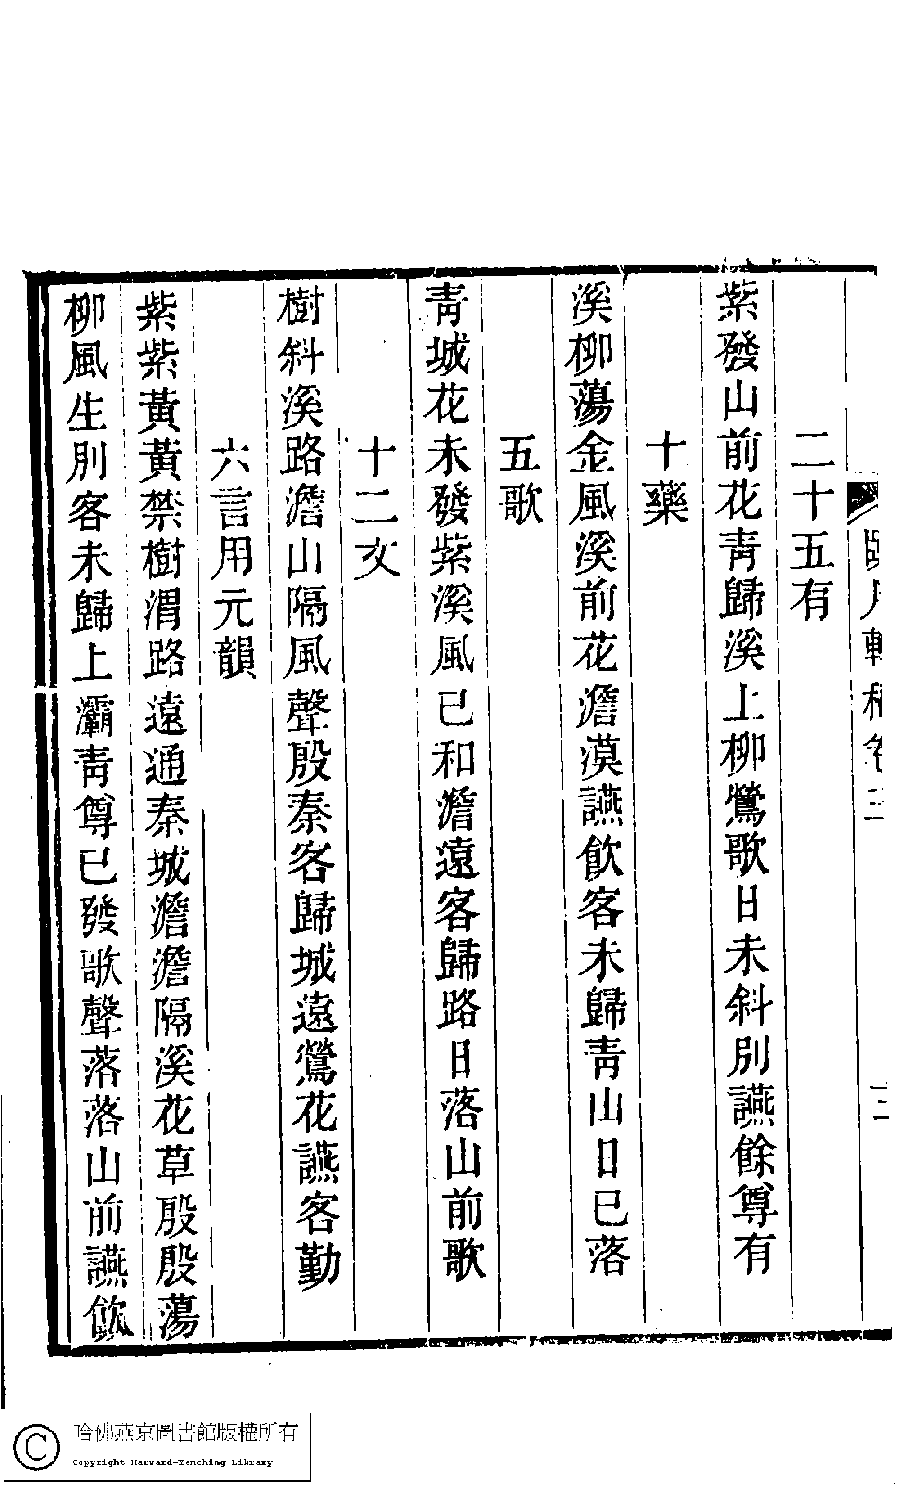 臥月軒稿卷三
三
二十五有
紫發山前花青歸溪上柳鶯歌日未斜別讌餘尊有
十藥
溪柳蕩金風溪前花澹漠讌飮客未歸青山日已落
五歌
青城花未發紫溪風已和澹遠客歸路日落山前歌
十二文
樹斜溪路澹山隔風聲殷秦客歸城遠鶯花讌客勤
六言用元韻
紫紫黃黃禁樹渭路遠通秦城澹澹隔溪花草殷殷蕩
柳風生別客未歸上灞青尊已發歌聲落落山前讌飮
哈佛燕京圖書館版權所有
Copyright Harvard-Yenching Library